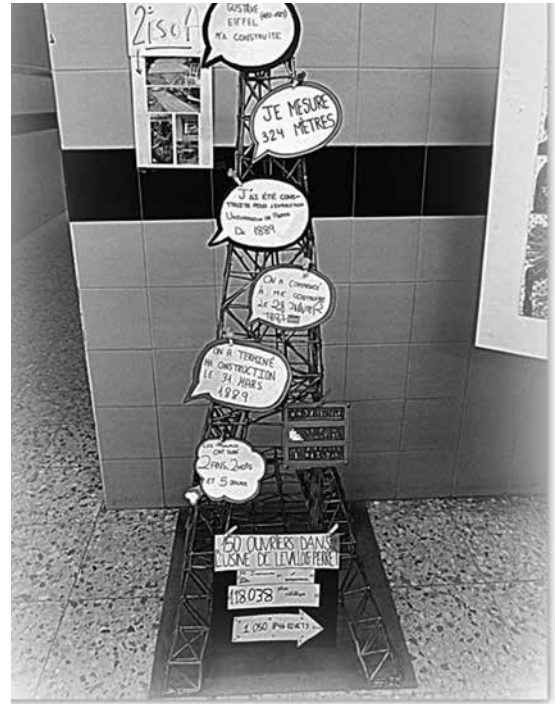 2ºISOA
GUSTAVE
EIFFEL
M'A CONSTRUITE
JE MESURE
324 MÈTRES
J'AI ÉTÉ CONS-
TRUITE POUR
UNIVERSELLE DE PARIS
DE 1889
ON A COMMENCÉ
À ME CONSTRUIRE
LE 28 JANVIER
1887
ON A TERMINÉ
MA CONSTRUCTION
LE 31 MARS
1889
LES
ONT DURÉ
2 ANS, 2 MOIS
ET 5 JOURS
150 OUVRIERS DANS
L'USINE DE LEVALLOIS-PERRET
118.038
1 050 846 RIVETS